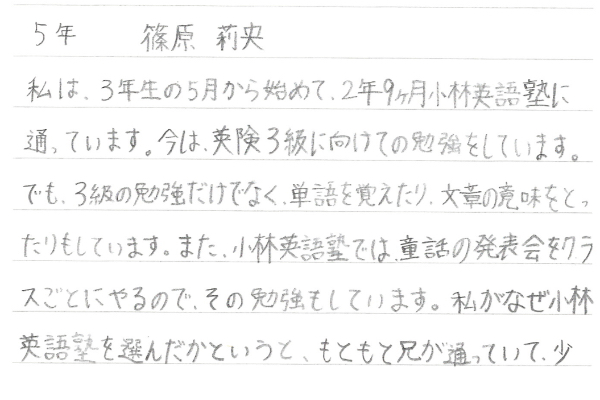 5年 篠原 莉央
私は、3年生の5月から始めて、2年9ヶ月小林英語塾に
通っています。今は、英険3級に向けての勉強をしています。
でも、3級の勉強だけでなく、単語を覚えたり、文章の意味をとっ
たりもしています。また、小林英語塾では、童話の発表会をクラ
スごとにやるので、その勉強もしています。私がなぜ小林
英語塾を選んだかというと、もともと兄が通っていて、少